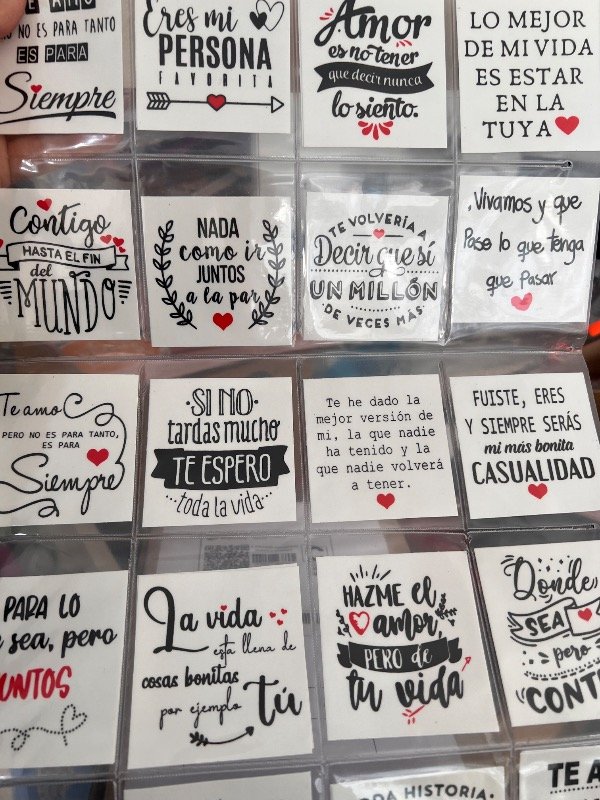 TE AMO
NO ES PARA TANTO
ES PARA
Siempre
Eres mi
PERSONA
FAVORITA
Amor
es no tener
que decir nunca
lo siento.
LO MEJOR
DE MI VIDA
ES ESTAR
EN LA
TUYA
Contigo
HASTA EL FIN
del
MUNDO
NADA
como ir
JUNTOS
a la par
TE VOLVERÍA A
Decir que sí
UN MILLÓN
DE VECES MÁS
Vivamos y que
Pase lo que tenga
que Pasar
Te amo
PERO NO ES PARA TANTO,
ES PARA
Siempre
SI NO
tardas mucho
TE ESPERO
toda la vida
Te he dado la
mejor versión de
mi, la que nadie
ha tenido y la
que nadie volverá
a tener.
FUISTE, ERES
Y SIEMPRE SERÁS
mi más bonita
CASUALIDAD
PARA LO
sea, pero
UNTOS
La vida
esta llena de
cosas bonitas
por ejemplo
tú
HAZME el
amor
PERO de
tu vida
Donde
SEA
pero
CONT
ODA HISTORIA.
TE A